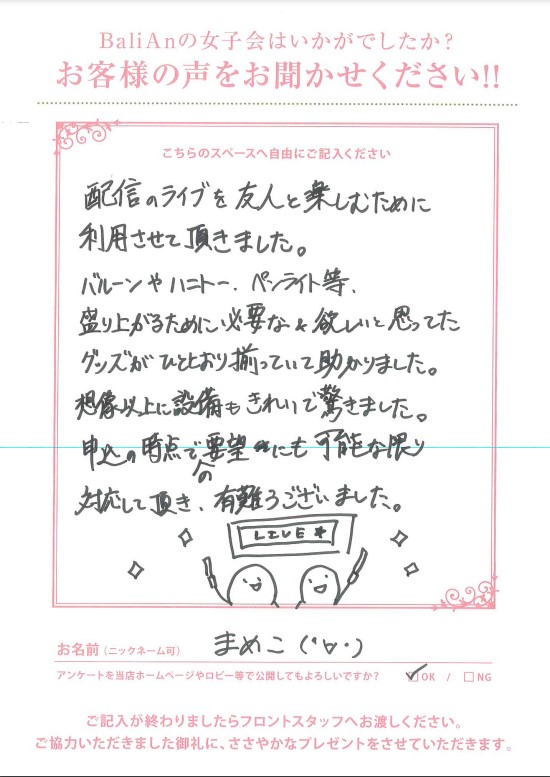 BaliAnの女子会はいかがでしたか?
お客様の声をお聞かせください!!
こちらのスペースへ自由にご記入ください
配信のライブを友人と楽しむために
利用させて頂きました。
バルーンやハニトー、ペンライト等、
盛り上がるために必要な&欲しいと思ってた
グッズがひととおり揃っていて助かりました。
想像以上に設備もきれいで驚きました。
申込の時点での要望にも可能な限り
対応して頂き、有難うございました。
LIVE
お名前(ニックネーム可) まめこ(・∀・)
アンケートを当店ホームページやロビー等で公開してもよろしいですか? ☑OK / □NG
ご記入が終わりましたらフロントスタッフへお渡しください。
ご協力いただきました御礼に、ささやかなプレゼントをさせていただきます。